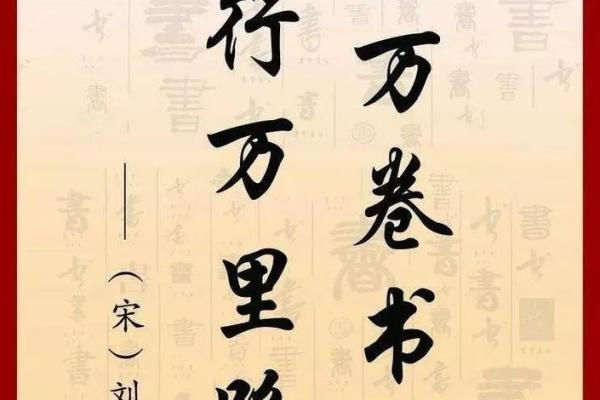 万卷书
行万里路
——（宋）刘